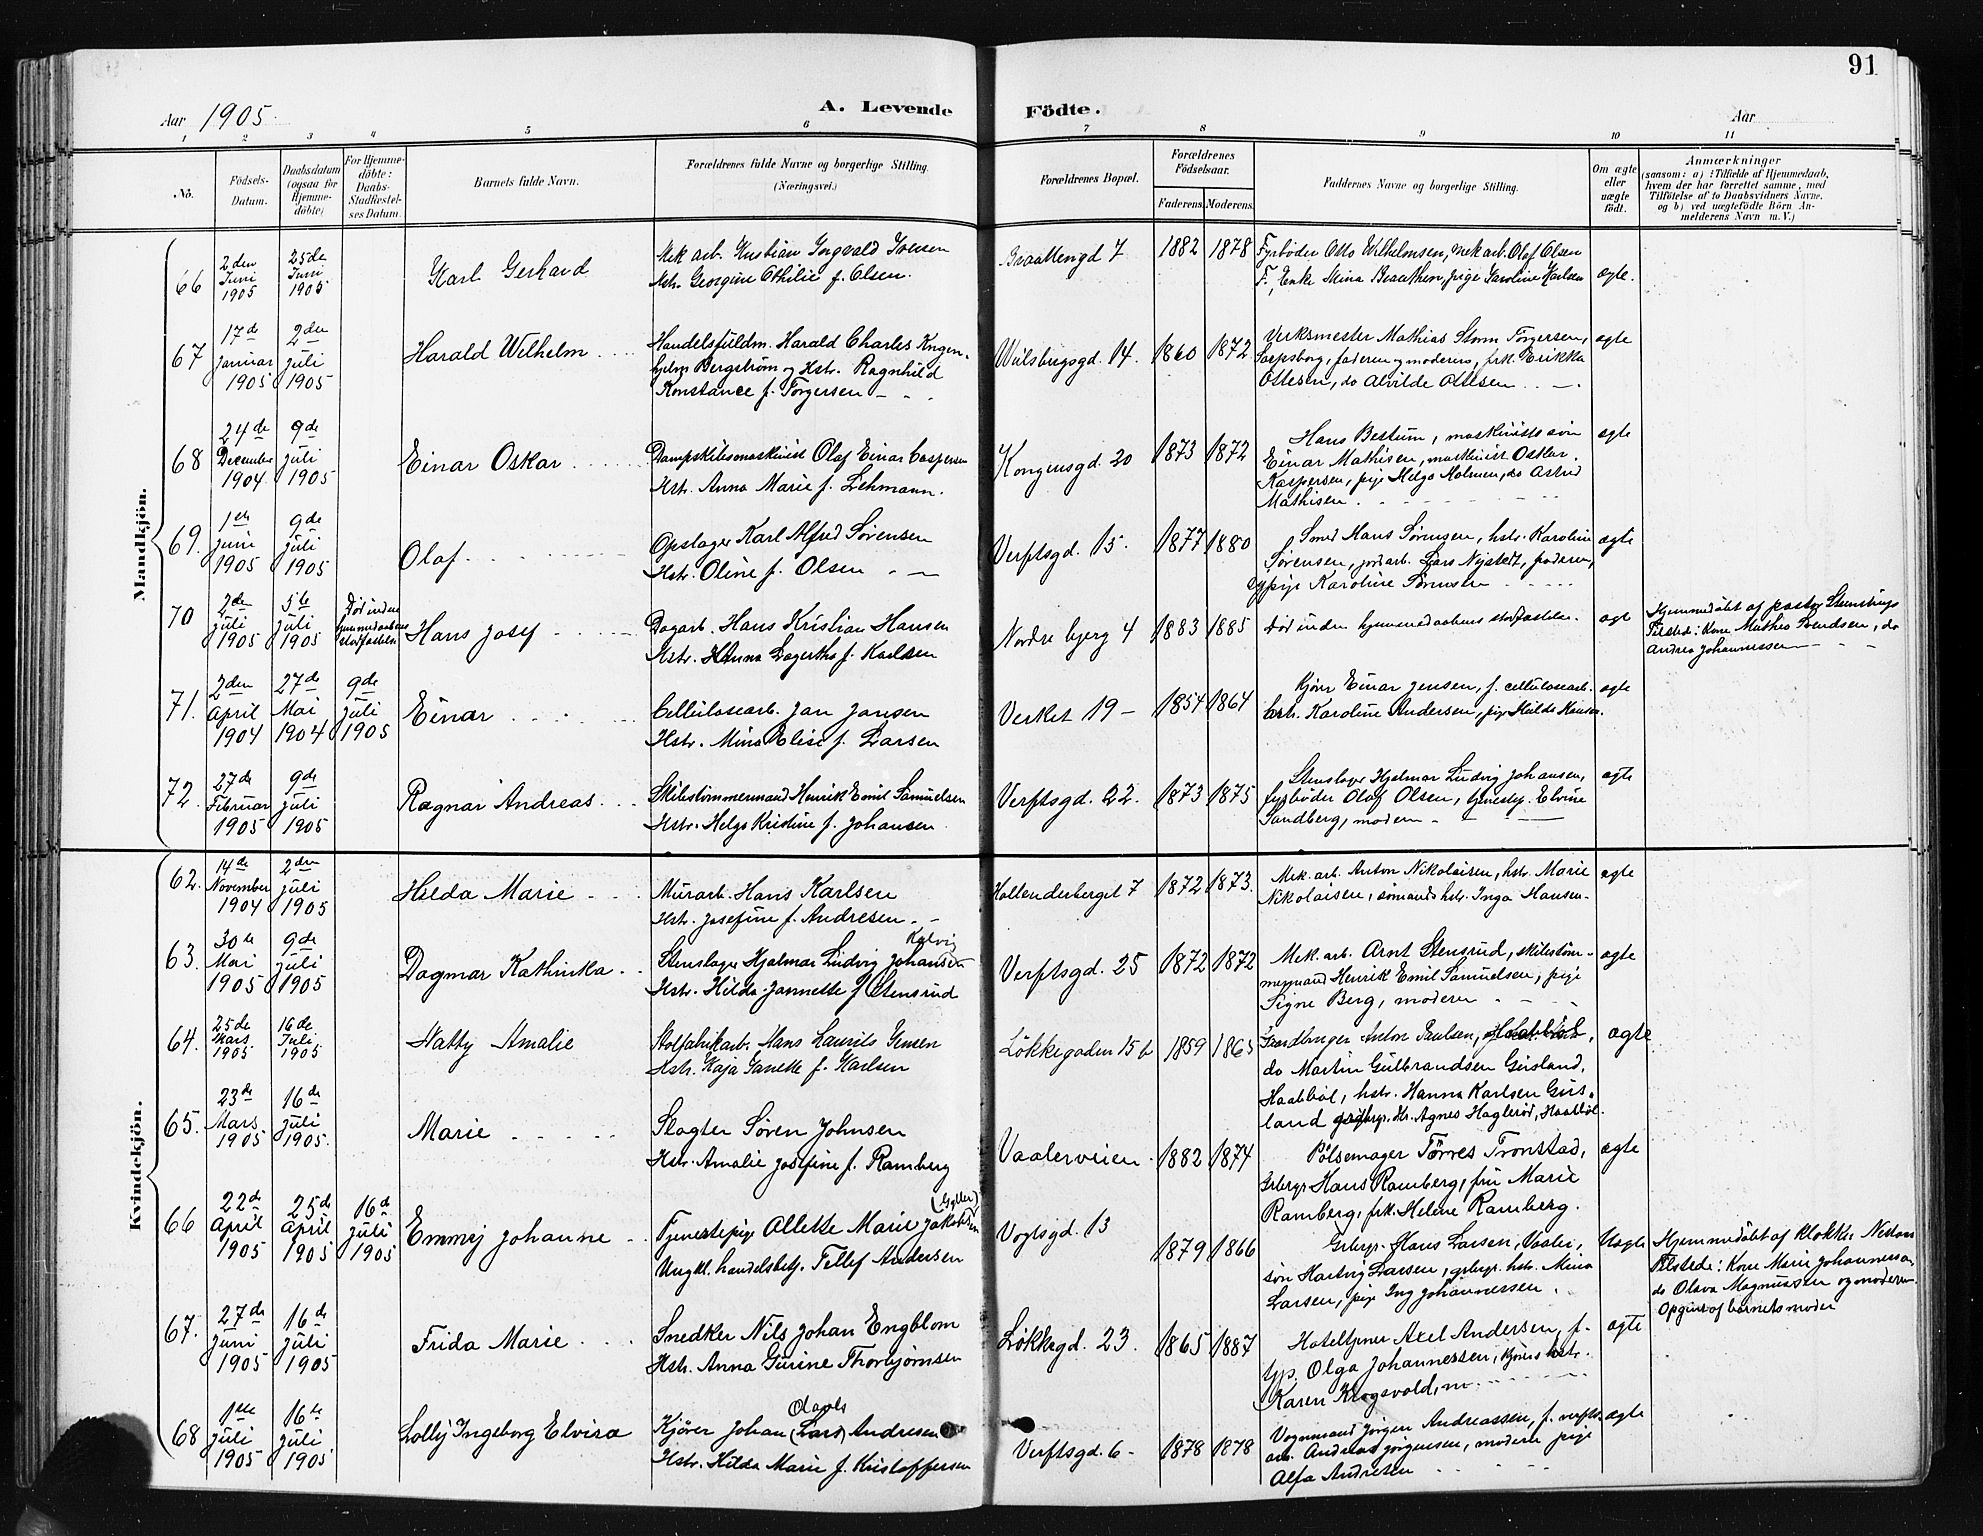 91
Aar 1905.
A. Levende Födte.
Aar
1 2 3 4 5 6 7 8 9 10 11
No. Födsels-Datum. Daabsdatum (ogsaa for Hjemme-döbte) For Hjemme-döbte: Daabs-Stadfæstel-ses Datum. Barnets fulde Navn. Forældrenes fulde Navne og borgerlige Stilling. (Næringsvei.) Forældrenes Bopæl. Forældrenes Födselsaar. Faderens. Moderens. Faddernes Navne og borgerlige Stilling. Om ægte eller uægte födt. Anmærkninger
(saasom: a) i Tilfælde af Hjemmedaab,
hvem der har forrettet samme, med
Tilföielse af to Daabsvidners Navne.
og b) ved uægtefödte Börn An-
melderens Navn m. V.)
Mandkjön.
66 2den Juni 1905 25de Juni 1905 Karl Gerhard
Mek arb. Kristian Ingvald Iversen
Hstr. Georgine Othilie f. Olsen.
Braatengd 7 1882 1878
Fyrböder Otto Wilhelmsen, mek arb. Olaf Olsen
F., Enke Mina Braathen, pige Karoline Karlsen
ægte.
67 17de Januar 1905 2den Juli 1905 Harald Wilhelm
Handelsfuldm. Harald Charles
Bergström og Hstr. Ragnhild
Konstance f. Torgersen
Wulsbergsgd. 14. 1860 1872
Verksmester Mathias Storm Torgersen,
Sarpsborg, faderen og moderen, frk. Erikka
Ottesen, do Alvilde Ottesen
ægte
68 24de December 1904. 9de Juli 1905 Einar Oskar
Dampskibsmaskinist Olaf Einar Caspersen
Hstr. Anna Marie f. Lehmann.
Kongensgd. 20 1873 1872
Hans Bestum, maskinists sön
Einar Mathisen, maskinist Oskar
Kaspersen, pige Helga Holmen, do Astrid
Mathisen
ægte
69. 1ste Juni 1905 9de Juli 1905 Olaf.
Opslager Karl Alfred Sörensen
Hstr. Oline f. Olsen
Verftsgd. 15. 1877 1880
Smed Hans Sörensen, hstr. Karoline
Sörensen, jordarb. Lars Nystedt, faderen,
pige Karoline Sörensen
ægte
70 2den Juli 1905 5te Juli 1905 Död inden hjemmedaabens stadfæstelse Hans Josef
Dagarb. Hans Kristian Hansen
Hstr. Hanna Lagertha f. Karlsen
Nordre bjerg 4 1883 1885
Död inden hjemmedaabens stadfæstelse.
ægte
Hjemmedöbt af pastor Stensbugs
Tilstede: Kone Mathea Svendsen, do
Andrea Johannessen
71. 2den April 1904 27de Mai 1904 9de Juli 1905 Einar
Cellulosearb. Jan Jansen
Hstr. Mina Elise f. Larsen
Verket 19 1854 1864
Kjörer Einar Jensen, f. cellulosearb.
hstr. Karoline Andersen, pige Hulda Hansen.
ægte
72. 27de Februar 1905 9de Juli 1905 Ragnar Andreas
Skibstömmermand Henrik Emil Samuelsen
Hstr. Helga Kristine f. Johansen
Verftsgd. 22. 1873 1875
Stenslager Hjalmar Ludvig Johansen,
fyrböder Olaf Olsen, tjenestep. Elvine
Sandberg, moderen
ægte
Kvindekjön.
62. 14de November 1904 2den Juli 1905 Hilda Marie
Murarb. Hans Karlsen
Hstr. Josefine f. Andresen.
Hollenderberget 7 1872 1873.
Mek. arb. Anton Nikolaisen, hstr. Marie
Nikolaisen, sömands hstr. Inga Hansen
ægte
63. 30te Mai 1905 9de Juli 1905 Dagmar Kathinka
Kalvig
Stenslager Hjalmar Ludvig Johansen
Hstr. Hilda Jannette f Stensrud
Verftsgd. 25 1872 1872
Mek. arb. Arnt Stensrud, skibstöm-
mermand Henrik Emil Samuelsen, pige
Signe Berg, moderen
ægte
64. 25de Mars 1905 16de Juli 1905 Natty Amalie
Stolfabrikarb. Hans Laurits Jensen
Hstr. Kaja Janette f. Karlsen
Lökkegaden 15 b 1859 1865
Anton Paulsen,
do Martin Gulbrandsen Gusland,
Haabböl, hstr. Hanna Karlsen Gus-
land, Agnes Hagleröd, Haabböl.
ægte
65. 23de Mars 1905 16de Juli 1905. Marie
Slagter Sören Johnsen
Hstr. Amalie Josefine f. Ramberg
Vaalerveien 1882 1874
Pölsemager Törres Tronstad,
Grbrgr Hans Ramberg, fru Marie
Ramberg, frk. Helene Ramberg.
ægte
66 22de April 1905 25de April 1905 16de Juli 1905 Emmy Johanne
(Gyller)
Tjenestepige Allette Marie Jakobsen
Ungkl. handelsbetj. Tellef Andersen
Vogtsgd. 13 1879 1866
Grbrgr. Hans Larsen, Vaaler,
sön Hartvig Larsen, grbrgr. hstr. Mina
Larsen, pige Ing Johannessen.
Uægte
Hjemmedöbt af klokker
Tilstede: Kone Marie Johannessen
do Olava Magnussen og moderen.
Opgivet af barnets moder
67. 27de Juni 1905 16de Juli 1905 Frida Marie
Snedker Nils Johan Engblom
Hstr. Anna Gurine Thorbjörnsen
Lökkegd. 23. 1865 1887
Hoteltjener Axel Andersen, f.
Olga Johannessen, kjörers hstr.
Karen Krogsvold, m.
ægte
68 1ste Juli 1905 16de Juli 1905 Lolly Ingeborg Elvira
Olavs
Kjörer Johan (Lars) Andresen
Hstr. Hilda Marie f. Kristoffersen
Verftsgd. 6 1878 1878
Vognmand Jörgen Andreassen, f. verfts-
arb. Andreas Jörgensen, moderen pige
Alfa Andresen
ægte